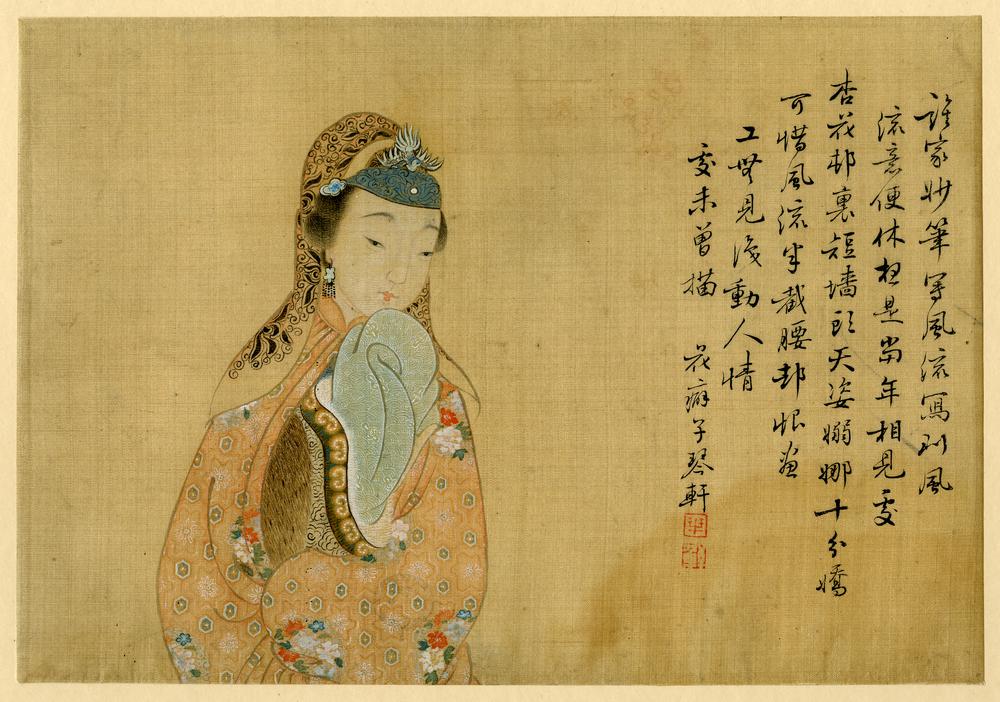 誰家妙筆写風流寫到風
流意便休想是當年相見處
杏花邨裏短墙頭天姿嫋娜十分嬌
可惜風流半截腰却恨畫
工無見識動人情
處未曾描 花癖子琴軒